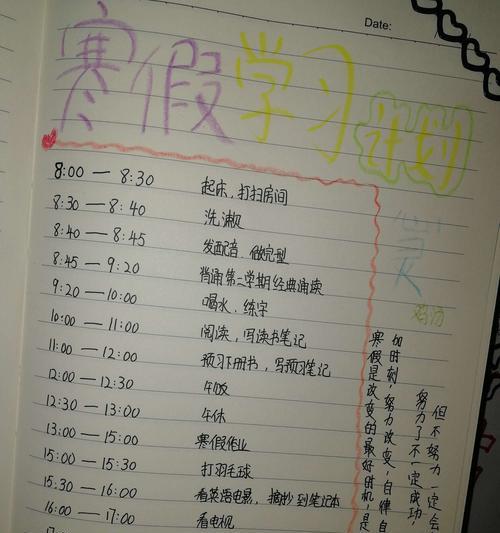 Date:
寒假学习计划
8:00 — 8:30 起床,打扫房间
8:30 — 8:40 洗漱
8:40 — 8:45 发配音、做完型
8:45 — 9:20 背诵第二学期经典诵读
9:20 — 10:00 喝水、练字
10:00 — 11:00 阅读,写读书笔记
11:00 — 12:00 预习下册书,写预习笔记
12:00 — 12:30 午饭
12:30 — 13:00 午休
13:00 — 15:00 寒假作业
15:00 — 15:30 打羽毛球
15:30 — 16:00 看英语电影,摘抄到笔记本
16:00 — 17:00 看电视
但不努力一定会
努力了不一定成功,
如时刻努力改变,自律自
寒假是改变的最好时机,是